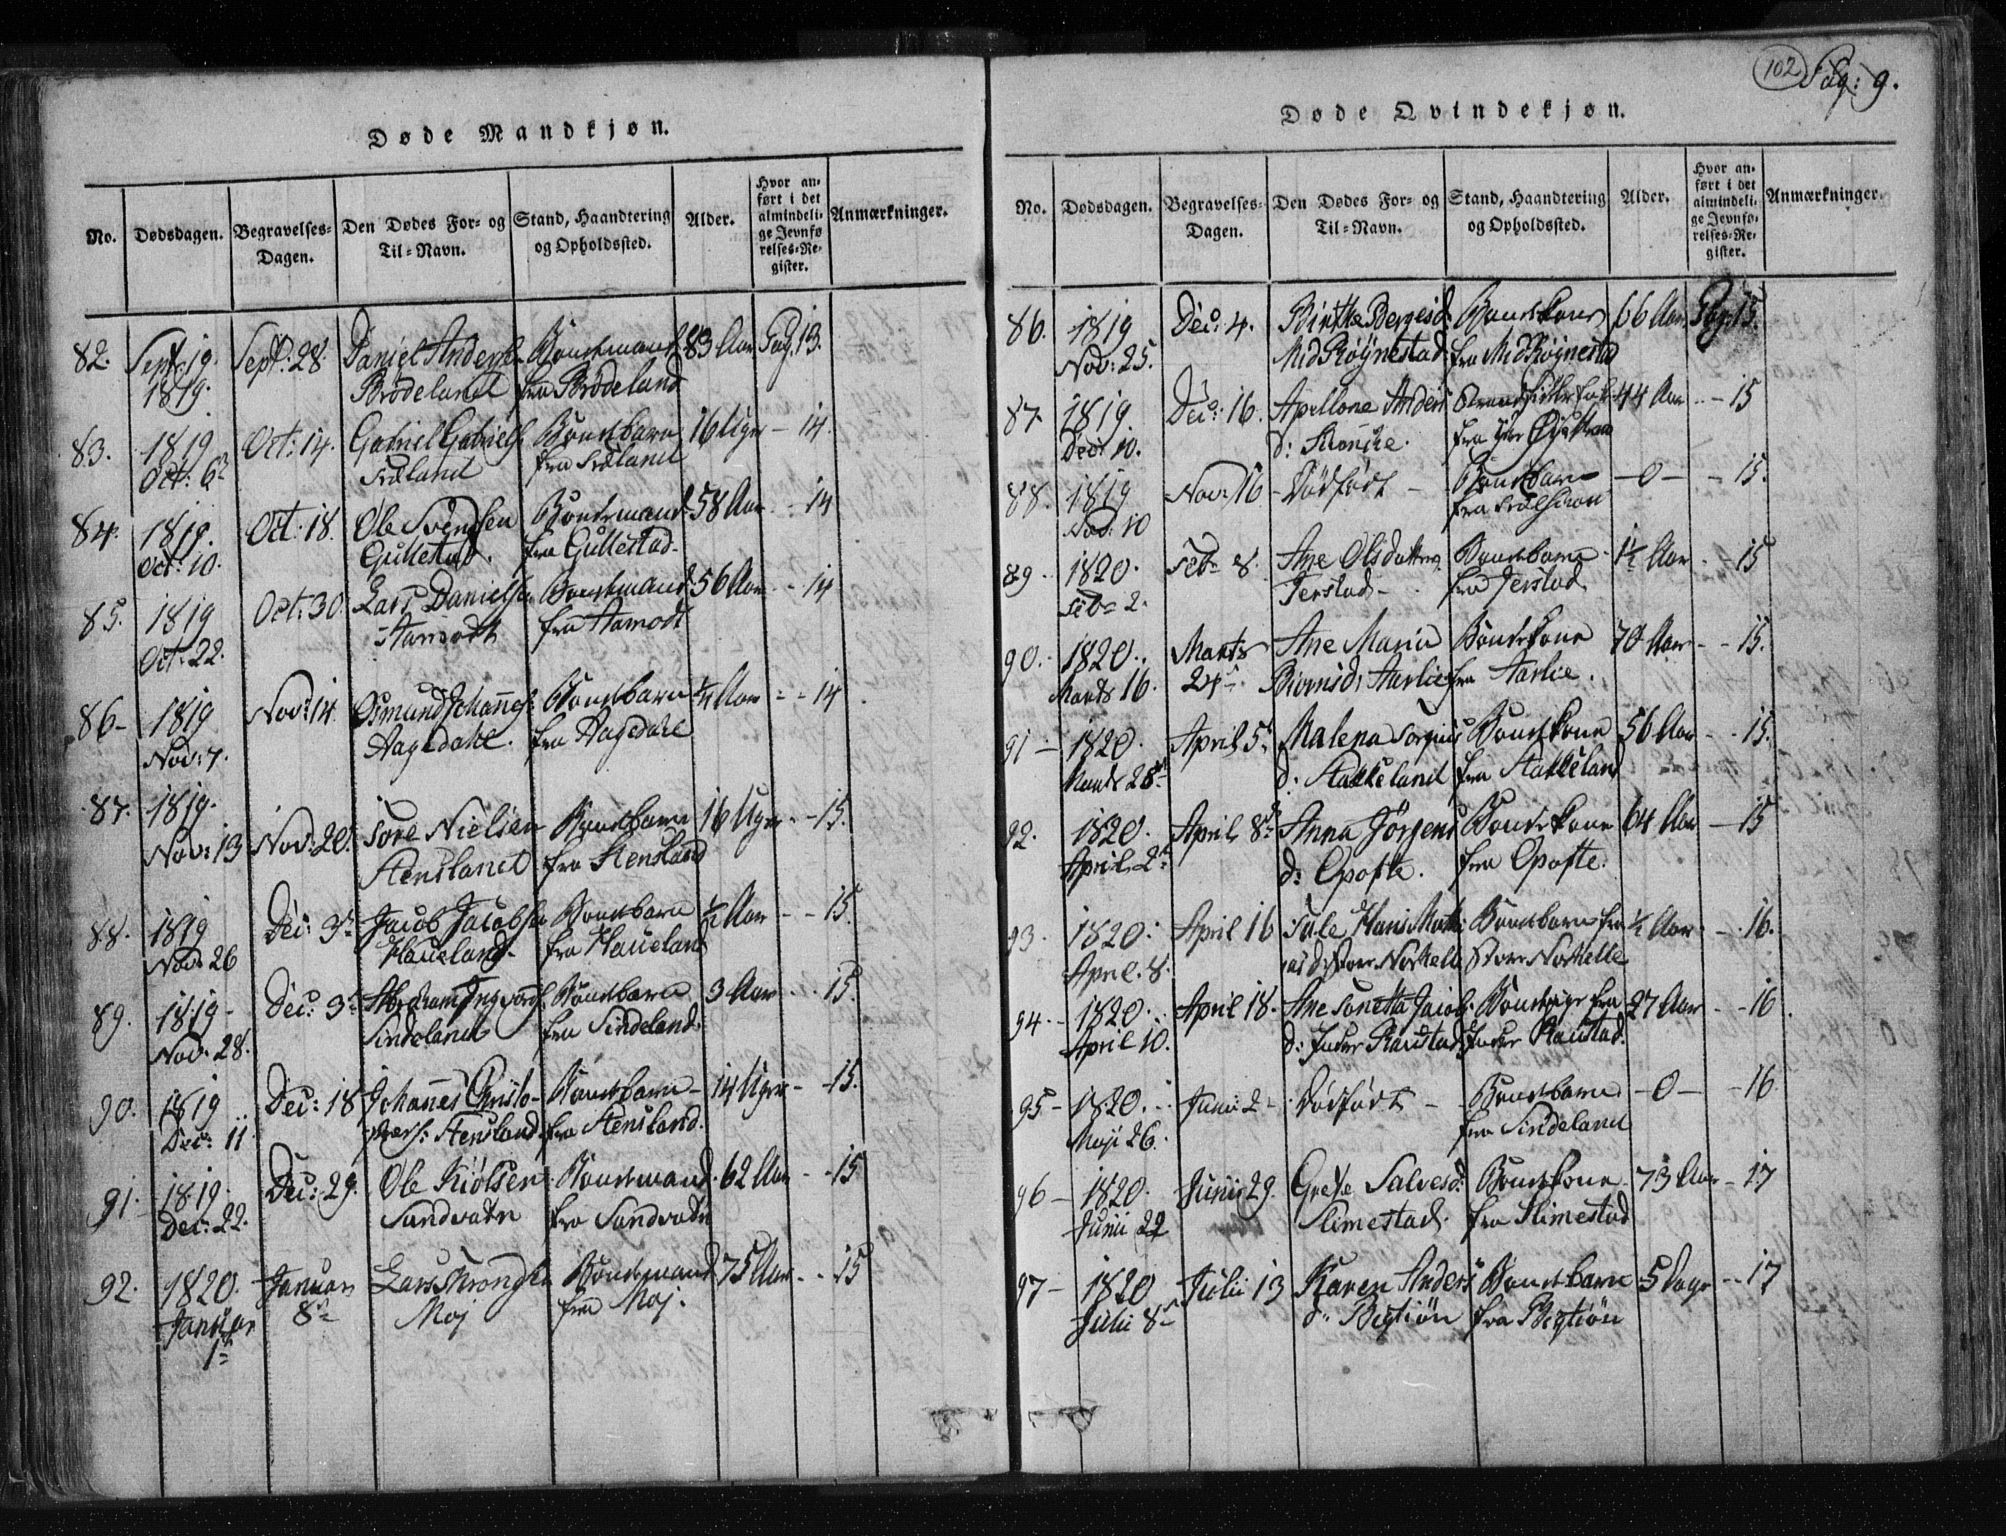 102 Pag: 9.
Døde Mandkjøn.
No.
Dødsdagen.
Begravelses-
Dagen.
Den Dødes For- og
Til-Navn.
Stand, Haandtering
og Opholdssted.
Alder.
Hvor an-
ført i det
almindeli-
ge Jevnfø
relses-Re-
gister.
Anmærkninger.
82. Sept: 19. Sept: 28. Daniel Anders: Bondemand 83 Aar Pag. 13.
1819. Brödeland fra Brödeland
83. 1819 Oct: 14. Gabriel Gabriels: Bondebarn 16 Uger – 14.
Oct: 6 fra
84. 1819. Oct: 18. Ole Svendsen Bondemand 58 Aar – 14
Oct: 10. Gullestad. fra Gullestad
85. 1819 Oct: 30 Lars Daniels: Bondemand 56 Aar – 14
Oct: 22. Aamodt fra Aamodt
86 – 1819 Nov: 14 Osmund Johannes: Bondebarn ¼ Aar – 14
Nov: 7. Hagedahl. fra Hagedahl
87. 1819. Nov: 20. Tore Nielsen Bondebarn 16 Uger – 15.
Nov: 13 Stensland fra Stensland
88. 1819 Dec: 3 Jacob Jacobsen Bondebarn ½ Aar – 15.
Nov: 26 Haueland. fra Haueland
89. 1819 – Dec: 3 Abraham Bondebarn 3 Aar – 15.
Nov: 28. Sindeland fra Sindeland
90. 1819 Dec: 18 Johannes Christo- Bondebarn – 14 Uger – 15.
Dec: 11 phers: Stensland fra Stensland.
91. 1819. Dec: 29. Ole Kiölsen Bondemand 62 Aar – 15
Dec: 22. Sandvatn fra Sandvatn
92. 1820. Januar Lars Bondemand 75 Aar – 15
Januar 8 Moj fra Moj.
1
Døde Qvindekjøn.
No.
Dødsdagen.
Begravelses-
Dagen.
Den Dødes For- og
Til-Navn.
Stand, Haandtering
og Opholdssted.
Alder.
Hvor an-
ført i det
almindeli-
ge Jevnfø-
relses-Re-
gister.
Anmærkninger.
86. 1819 Dec: 4. Birthe Bergesd. Bondekone 66 Aar Pag: 15.
Nov: 25. Midröÿnestad fra Midröÿnestad
87 1819. Dec: 16. Apellone Anders 44 Aar – 15
Dec: 10. d: fra
88. 1819 Nov: 16 Dödfödt – Bondebarn – 0 – – 15.
Nov: 10 fra
89 1820. Feb: 8. Ane Olsdatter Bondebarn 1½ Aar – 15
Feb: 2. Jerstad – fra Jerstad
90. 1820. Marts Ane Maria Bondekone 70 Aar – 15.
Marts 16. 24 Biörnsd: Aarlie fra Aarlie.
91 – 1820. April 5 Malena Torgius Bondekone 56 Aar – 15.
Marts 28 d: Stakkeland fra Stakkeland
92. 1820. April 8 Anna Jörgens Bondekone 64 Aar – 15
April 2 d: Opofte. fra Opofte.
93. 1820. April 16 Bondebarn fra ½ Aar – 16.
April. 8. Store
94 – 1820. April 18. Ane Tonetta Jacob: Bondepige fra 27 Aar – 16.
April 10. d: Indre Raustad Indre Raustad.
95 – 1820. Junii 2 – Dödfödt – Bondebarn – 0 – – 16
Maji 26. fra Sindeland
96 – 1820. Junii 29. Grethe Salvesd: Bondekone 73 Aar – 17
Junii 22 Slimestad. fra Slimestad
97 – 1820 Julii 13 Karen Anders Bondebarn 5 Dage – 17
Julii 8 d: Bigtiön fra Bigtiön